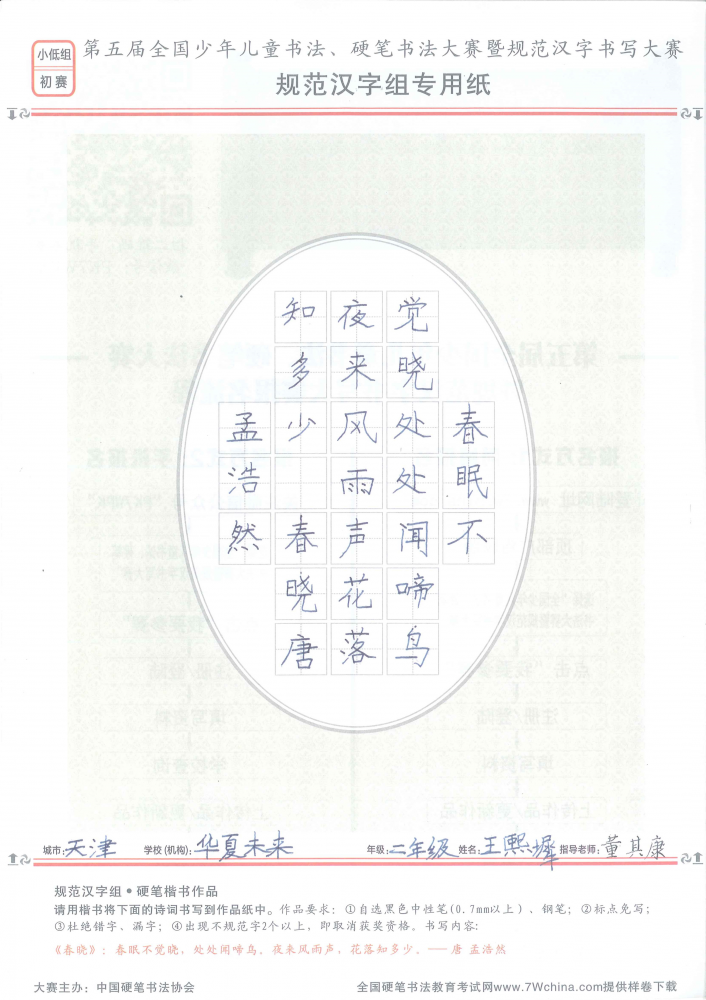 小低组
初赛
第五届全国少年儿童书法、硬笔书法大赛暨规范汉字书写大赛
规范汉字组专用纸
春眠不
觉晓处处闻啼鸟
夜来风雨声花落
知多少 春晓唐
孟浩然
城市:天津 学校(机构):华夏未来 年级:二年级 姓名:王熙墀 指导老师:董其康
规范汉字组•硬笔楷书作品
请用楷书将下面的诗词书写到作品纸中。作品要求:①自选黑色中性笔(0.7mm以上)、钢笔;②标点免写;
③杜绝错字、漏字;④出现不规范字2个以上,即取消获奖资格。书写内容:
《春晓》:春眠不觉晓,处处闻啼鸟。夜来风雨声,花落知多少。——唐 孟浩然
大赛主办:中国硬笔书法协会
全国硬笔书法教育考试网www.7Wchina.com提供样卷下载